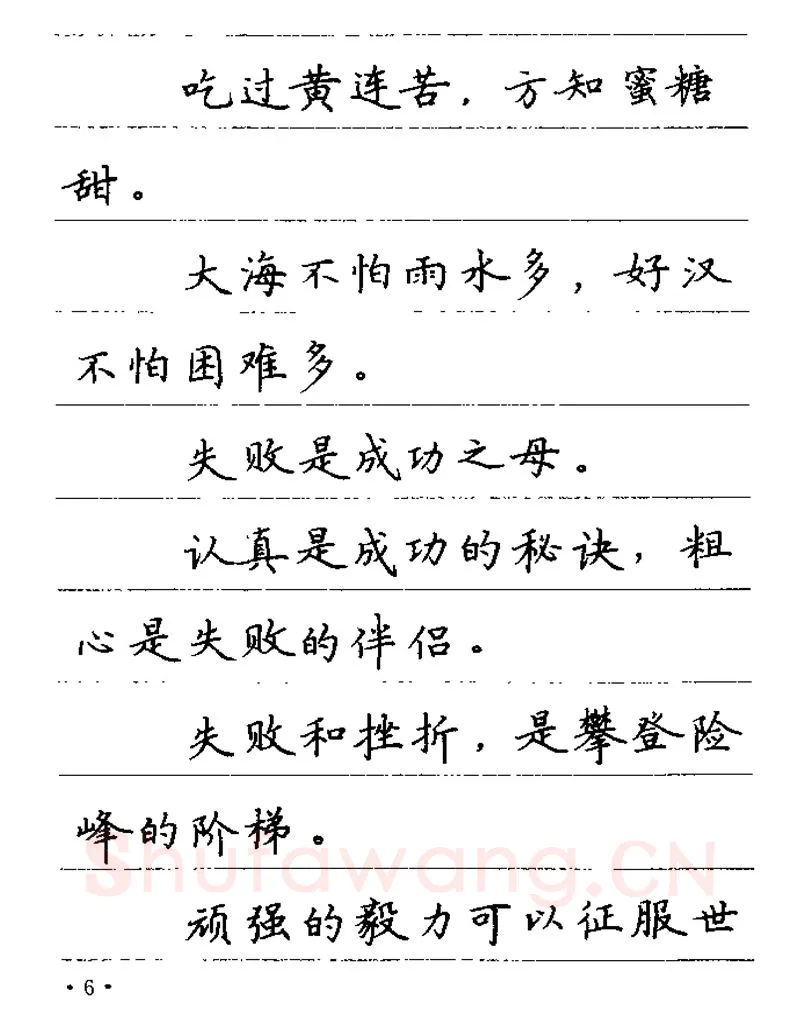 吃过黄连苦，方知蜜糖
甜。
大海不怕雨水多，好汉
不怕困难多。
失败是成功之母。
认真是成功的秘诀，粗
心是失败的伴侣。
失败和挫折，是攀登险
峰的阶梯。
Shufawang.CN
顽强的毅力可以征服世
·6·